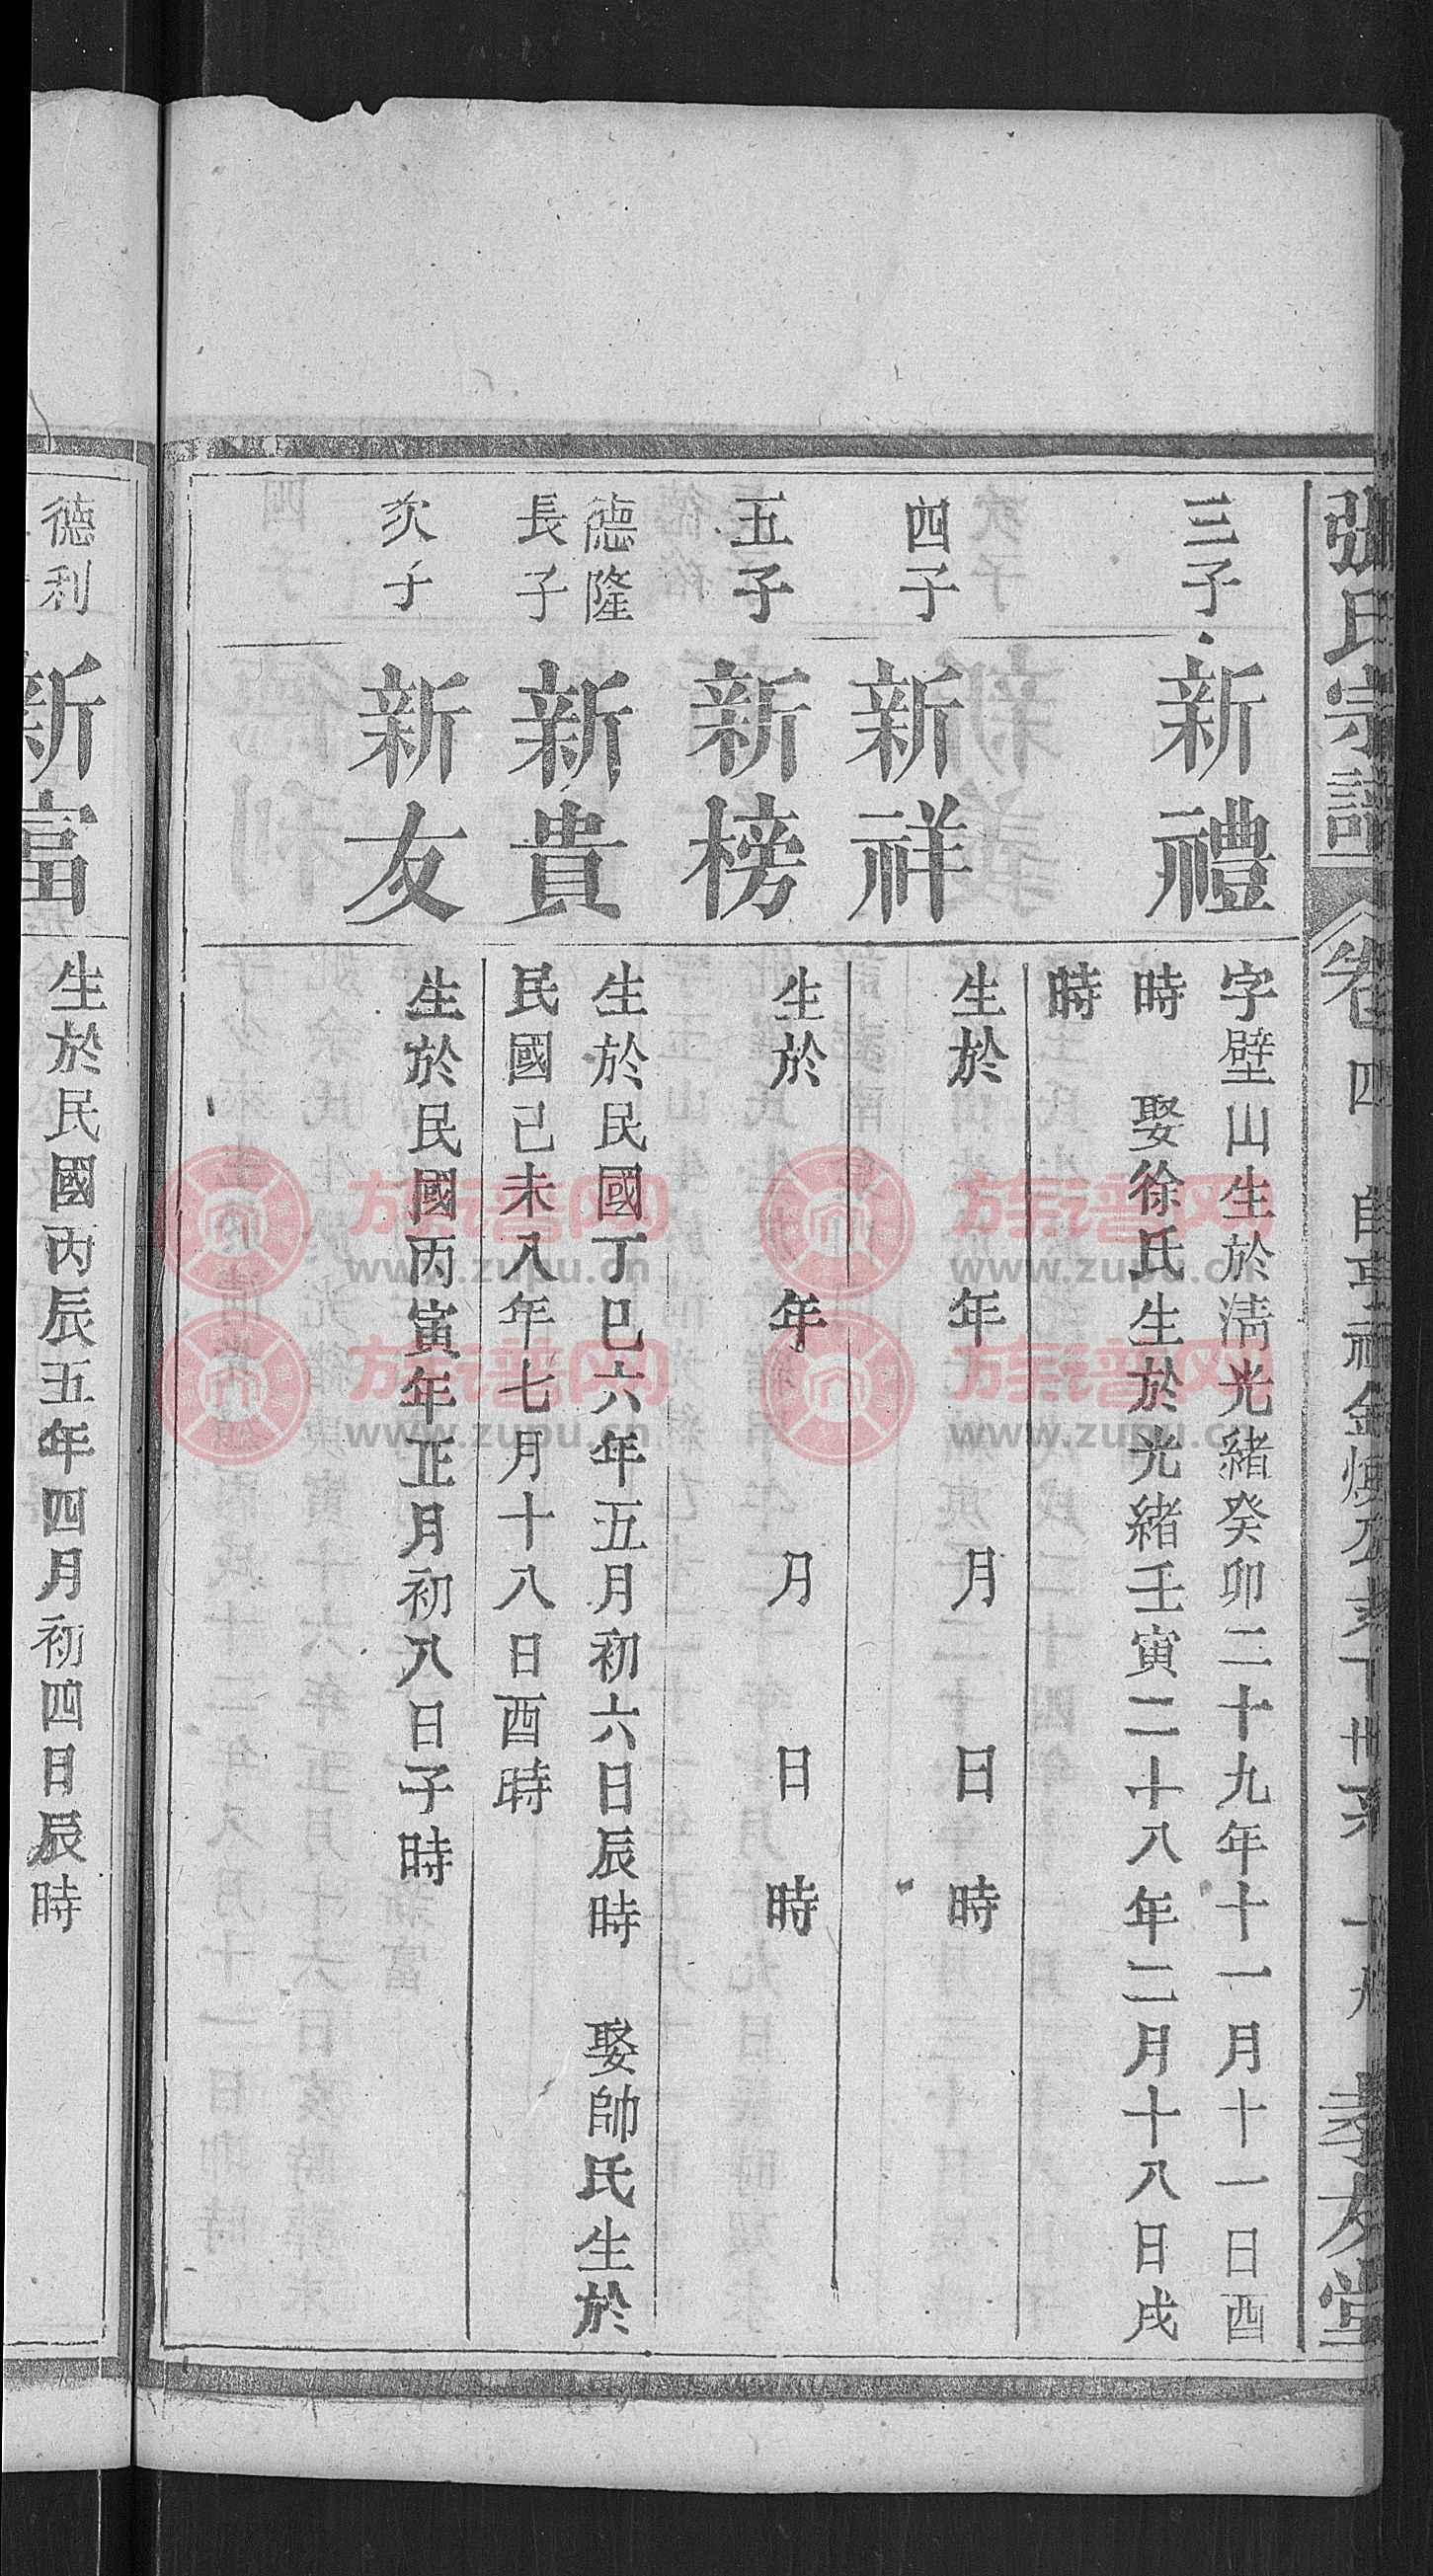 張氏宗譜
卷四
孝友堂
三子
新禮
字壁山生於淸光緒癸卯二十九年十一月十一日酉
時　娶徐氏生於光緒壬寅二十八年二月十八日戌
時
四子
新祥
生於　年　月　日　時
五子
新榜
生於　年　月　日　時
德隆
長子
新貴
生於民國丁巳六年五月初六日辰時　娶帥氏生於
民國己未八年七月十八日酉時
次子
新友
生於民國丙寅年正月初八日子時
德利
新富
生於民國丙辰五年四月初四日辰時
族谱网
www.zupu.cn
族谱网
www.zupu.cn
族谱网
www.zupu.cn
族谱网
www.zupu.cn